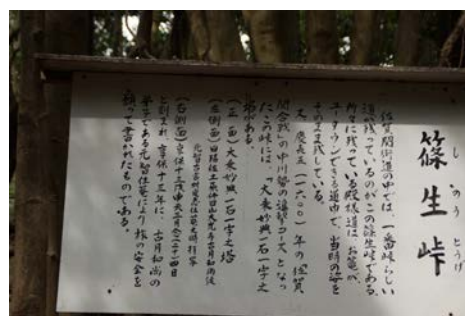 篠生峠
しのうとうげ
佐賀関街道の中では、一番峠らしい
道が残っているのがこの篠生峠である。
所々に残っている殿様道は、お篭が、
ユーターンできる道巾で、当時の姿を
そのまま残している。
又、慶長五(一六〇〇)年の佐賀
関合戦の中川勢の進撃コースとなっ
たこの峠には、「大乗妙典一石一字之
塔がある。
(正面)大乗妙典一石一字之塔
(右側面)享保十三戊申天三月
と刻まれ、享保十三年に、古月和尚の
弟子である元智住菴により、旅の安全を
願って書かれたものである。